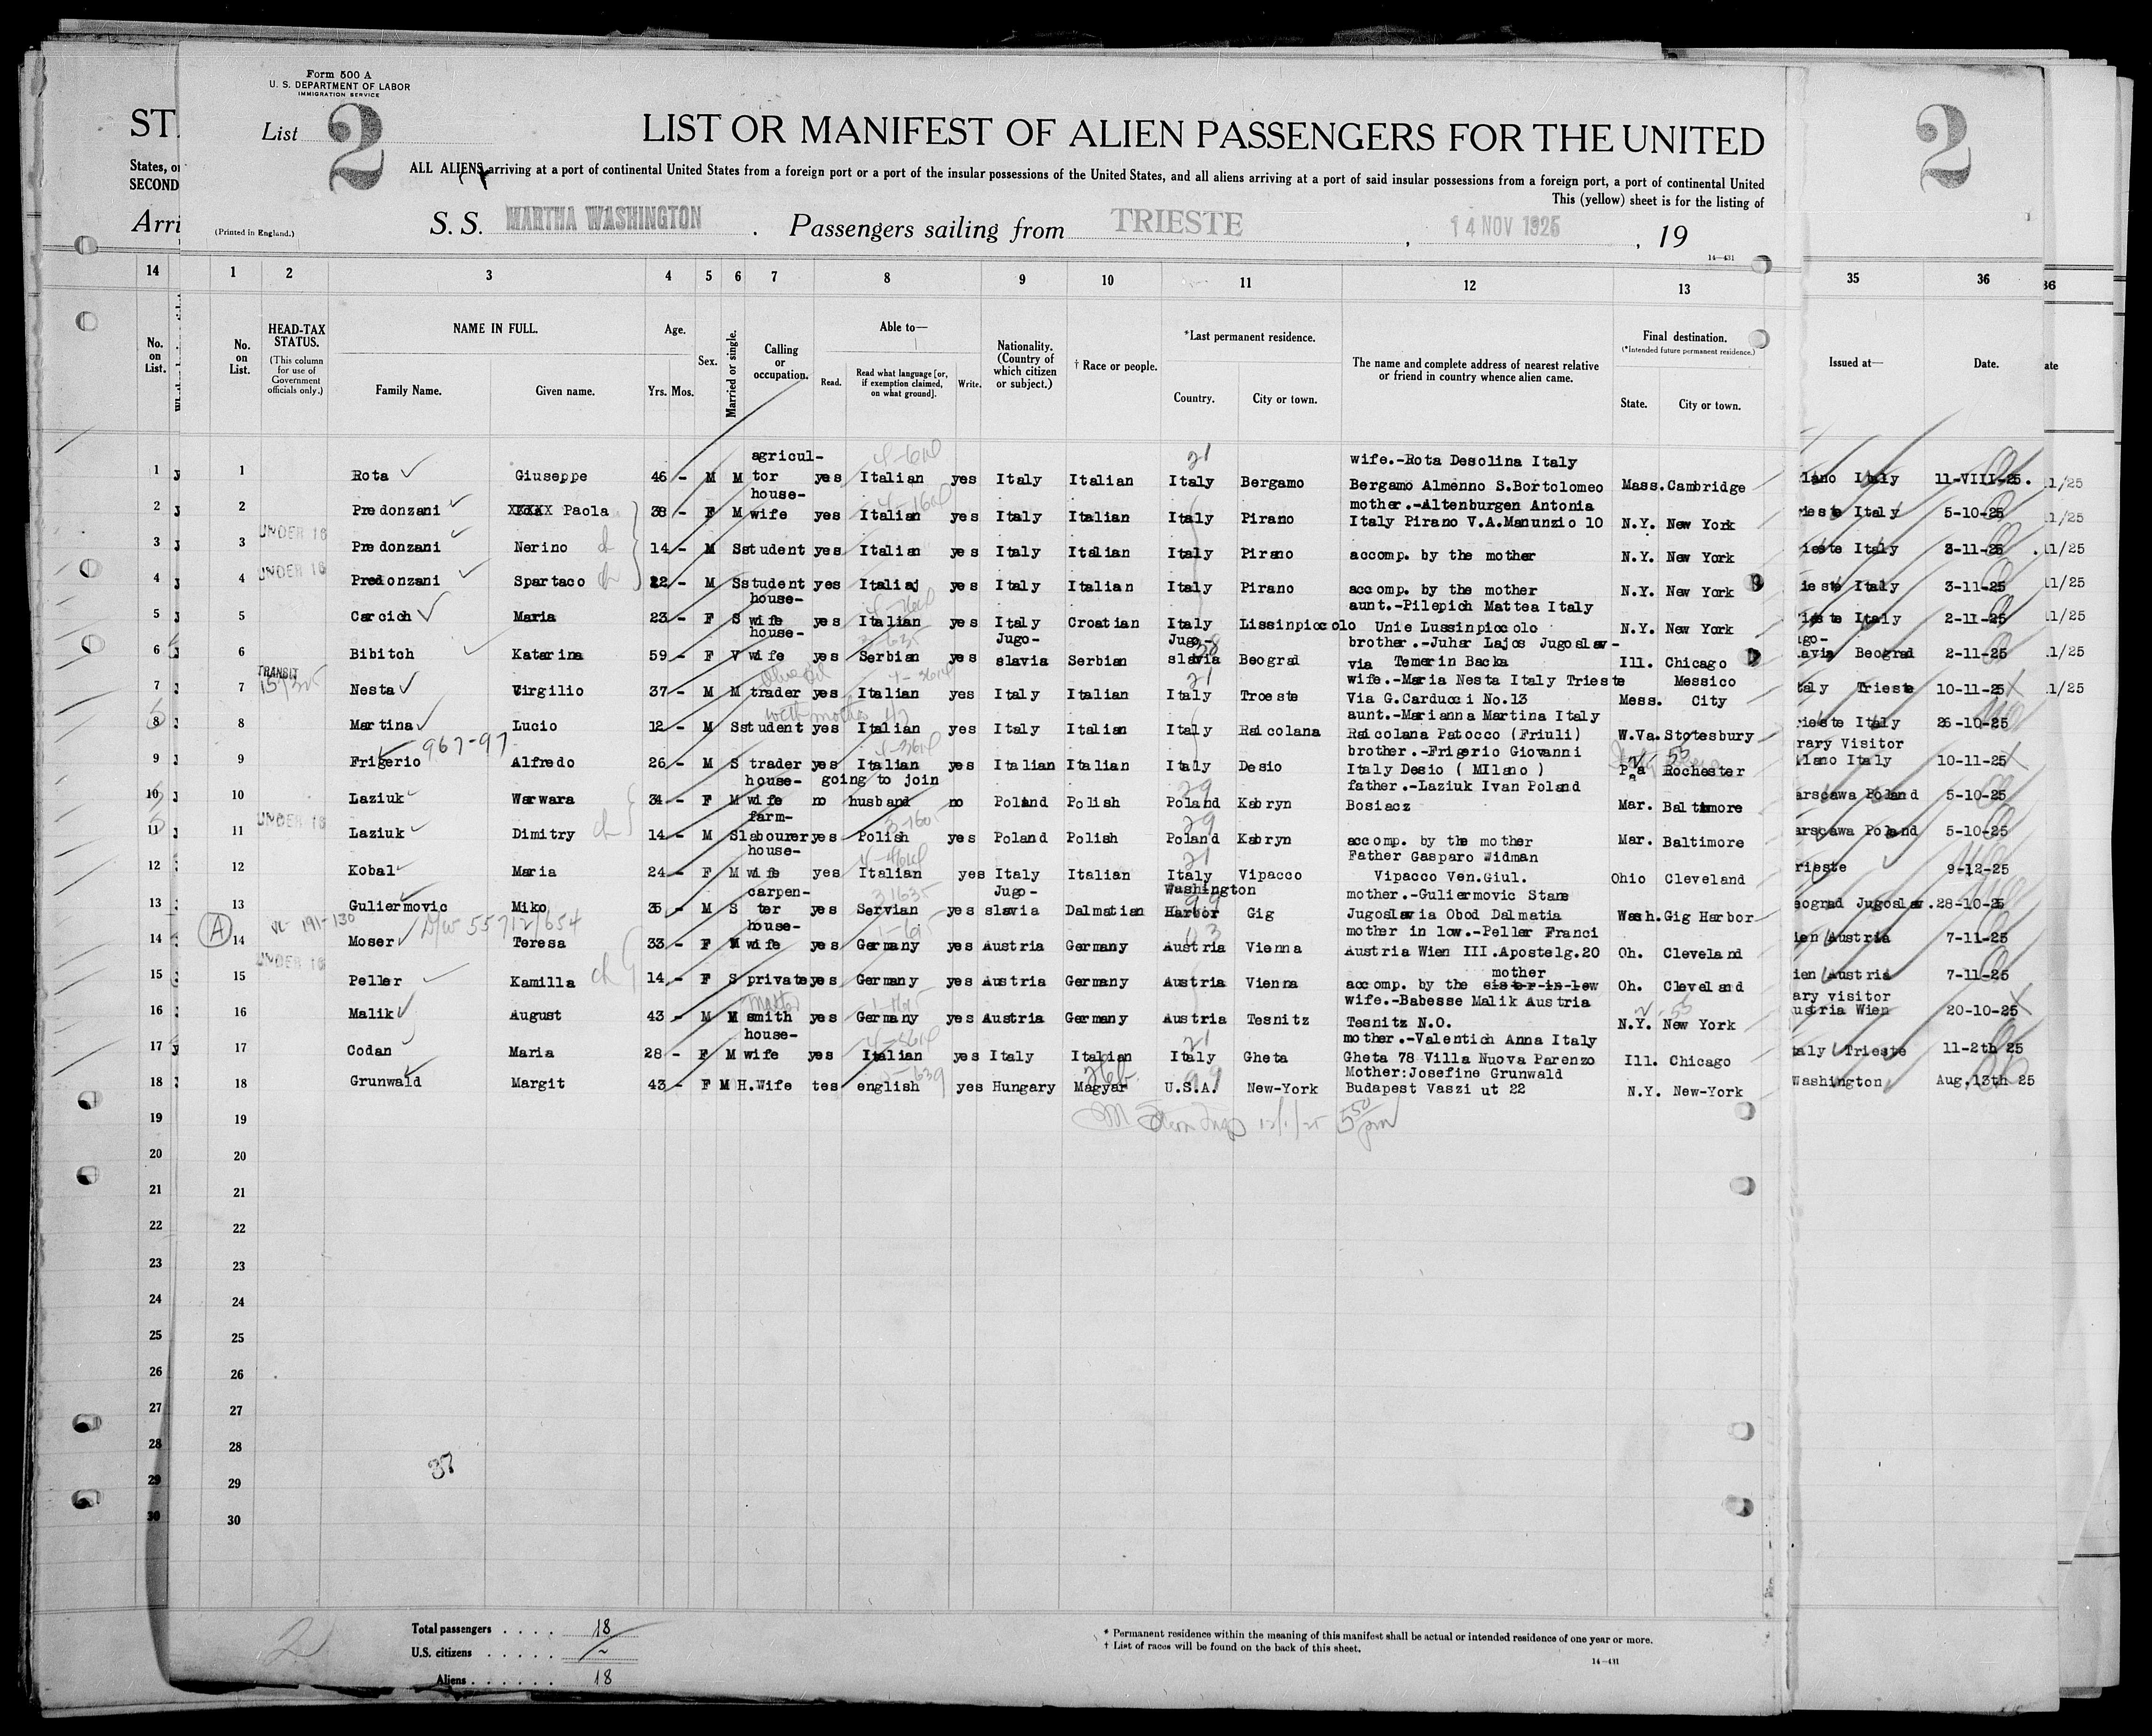 Form 500 A
U. S. DEPARTMENT OF LABOR
IMMIGRATION SERVICE
ST
List 2 LIST OR MANIFEST OF ALIEN PASSENGERS FOR THE UNITED 2
States, or
SECOND
ALL ALIENS arriving at a port of continental United States from a foreign port or a port of the insular possessions of the United States, and all aliens arriving at a port of said insular possessions from a foreign port, a port of continental United
This (yellow) sheet is for the listing of
Arri (Printed in England.) S. S. MARTHA WASHINGTON . Passengers sailing from TRIESTE , 14 NOV 1925 , 19
14—431
14 1 2 3 4 5 6 7 8 9 10 11 12 13 35 36 36
No. on List. No. on List. HEAD-TAX STATUS. (This column for use of Government officials only.) NAME IN FULL. Family Name. Given name. Age. Yrs. Mos. Sex. Married or single. Calling or occupation. Able to— Read. Read what language [or, if exemption claimed, on what ground]. Write. Nationality. (Country of which citizen or subject.) † Race or people. *Last permanent residence. Country. City or town. The name and complete address of nearest relative or friend in country whence alien came. Final destination. (*Intended future permanent residence.) State. City or town. Issued at— Date. ate
agricul- wife.-Rota Desolina Italy
1 1 Rota Giuseppe 46 - M M tor yes Italian yes Italy Italian Italy Bergamo Bergamo Almenno S.Bortolomeo Mass. Cambridge lano Italy 11-VIII-25. 11/25
house- mother.-Altenburgen Antonia
2 2 Predonzani XXXXX Paola 38 - F M wife yes Italian yes Italy Italian Italy Pirano Italy Pirano V.A.Manunzio 10 N.Y. New York rieste Italy 5-10-25 11/25
UNDER 16
3 3 Predonzani Nerino ch 14 - M S student yes Italian yes Italy Italian Italy Pirano accomp. by the mother N.Y. New York ieste Italy 3-11-25 .11/25
UNDER 16
4 4 Predonzani Spartaco ch 12 - M S student yes Italiaj yes Italy Italian Italy Pirano accomp. by the mother N.Y. New York ieste Italy 3-11-25 11/25
house- aunt.-Pilepich Mattea Italy
5 5 Carcich Maria 23 - F S wife yes Italian yes Italy Croatian Italy Lissinpiccolo Unie Lussinpiccolo N.Y. New York rieste Italy 2-11-25 11/25
house- Jugo- Jugo- brother.-Juhar Lajos Jugoslav- ugo-
6 6 Bibitch Katarina 59 - F V wife yes Serbian yes slavia Serbian slavia Beograd via Temerin Backa Ill. Chicago avia Beograd 2-11-25 11/25
TRANSIT wife.-Maria Nesta Italy Trieste Messico
7 7 Nesta Virgilio 37 - M M trader yes Italian yes Italy Italian Italy Troeste Via G.Carducci No.13 Mess. City taly Trieste 10-11-25 11/25
with mother aunt.-Marianna Martina Italy
8 8 Martina Lucio 12 - M S student yes Italian yes Italy Italian Italy Raicolana Raicolana Patocco (Friuli) W.Va. Stotesbury rieste Italy 26-10-25
967-97 brother.-Frigerio Giovanni rary Visitor
9 9 Frigerio Alfredo 26 - M S trader yes Italian yes Italian Italian Italy Desio Italy Desio ( MIlano ) Pa Rochester lano Italy 10-11-25
house- going to join father.-Laziuk Ivan Poland
10 10 Laziuk Warwara 34 - F M wife no husband no Poland Polish Poland Kobryn Bosiacz Mar. Baltimore arscawa Poland 5-10-25
UNDER 16 farm-
11 11 Laziuk Dimitry ch 14 - M S labourer yes Polish yes Poland Polish Poland Kobryn accomp. by the mother Mar. Baltimore arscawa Poland 5-10-25
house- Father Gasparo Widman
12 12 Kobal Maria 24 - F M wife yes Italian yes Italy Italian Italy Vipacco Vipacco Ven.Giul. Ohio Cleveland rieste 9-12-25
carpen- Jugo- Washington mother.-Guliermovic Stane
13 13 Guliermovic Miko 35 - M S ter yes Servian yes slavia Dalmatian Harbor Gig Jugoslavia Obod Dalmatia Wash. Gig Harbor eograd Jugoslav. 28-10-25
(A) 191-130 55712/654 house- mother in low.-Peller Franci
14 14 Moser Teresa 33 - F M wife yes Germany yes Austria Germany Austria Vienna Austria Wien III.Apostelg.20 Oh. Cleveland ien Austria 7-11-25
UNDER 16 mother
15 15 Peller Kamilla ch 14 - F S private yes Germany yes Austria Germany Austria Vienna accomp. by the sister-in-lew Oh. Cleveland ien Austria 7-11-25
wife.-Babesse Malik Austria ary visitor
16 16 Malik August 43 - M M smith yes Germany yes Austria Germany Austria Tesnitz Tesnitz N.O. N.Y. New York ustria Wien 20-10-25
house- mother.-Valentich Anna Italy
17 17 Codan Maria 28 - F M wife yes Italian yes Italy Italian Italy Gheta Gheta 78 Villa Nuova Parenzo Ill. Chicago taly Trieste 11-2th 25
Mother:Josefine Grunwald
18 18 Grunwald Margit 43 - F M H.Wife tes english yes Hungary Magyar U.S.A. New-York Budapest Vaszi ut 22 N.Y. New-York Washington Aug.13th 25
19 19 12/1/25 5 50 pm
20 20
21 21
22 22
23 23
24 24
25 25
26 26
27 27
28 28
37
29 29
30 30
2
Total passengers . . . . 18
U.S. citizens . . . . . ~
Aliens . . . . . . 18
* Permanent residence within the meaning of this manifest shall be actual or intended residence of one year or more.
† List of races will be found on the back of this sheet.
14—431